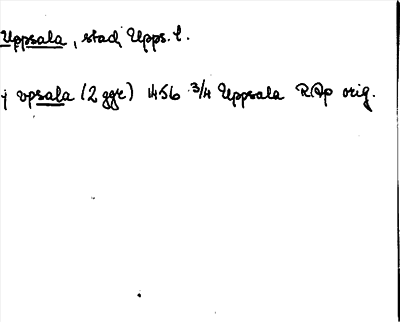 Uppsala, stad, Upps. l.
j vpsala (2 ggr) 1456 3/4 Uppsala RAp orig.